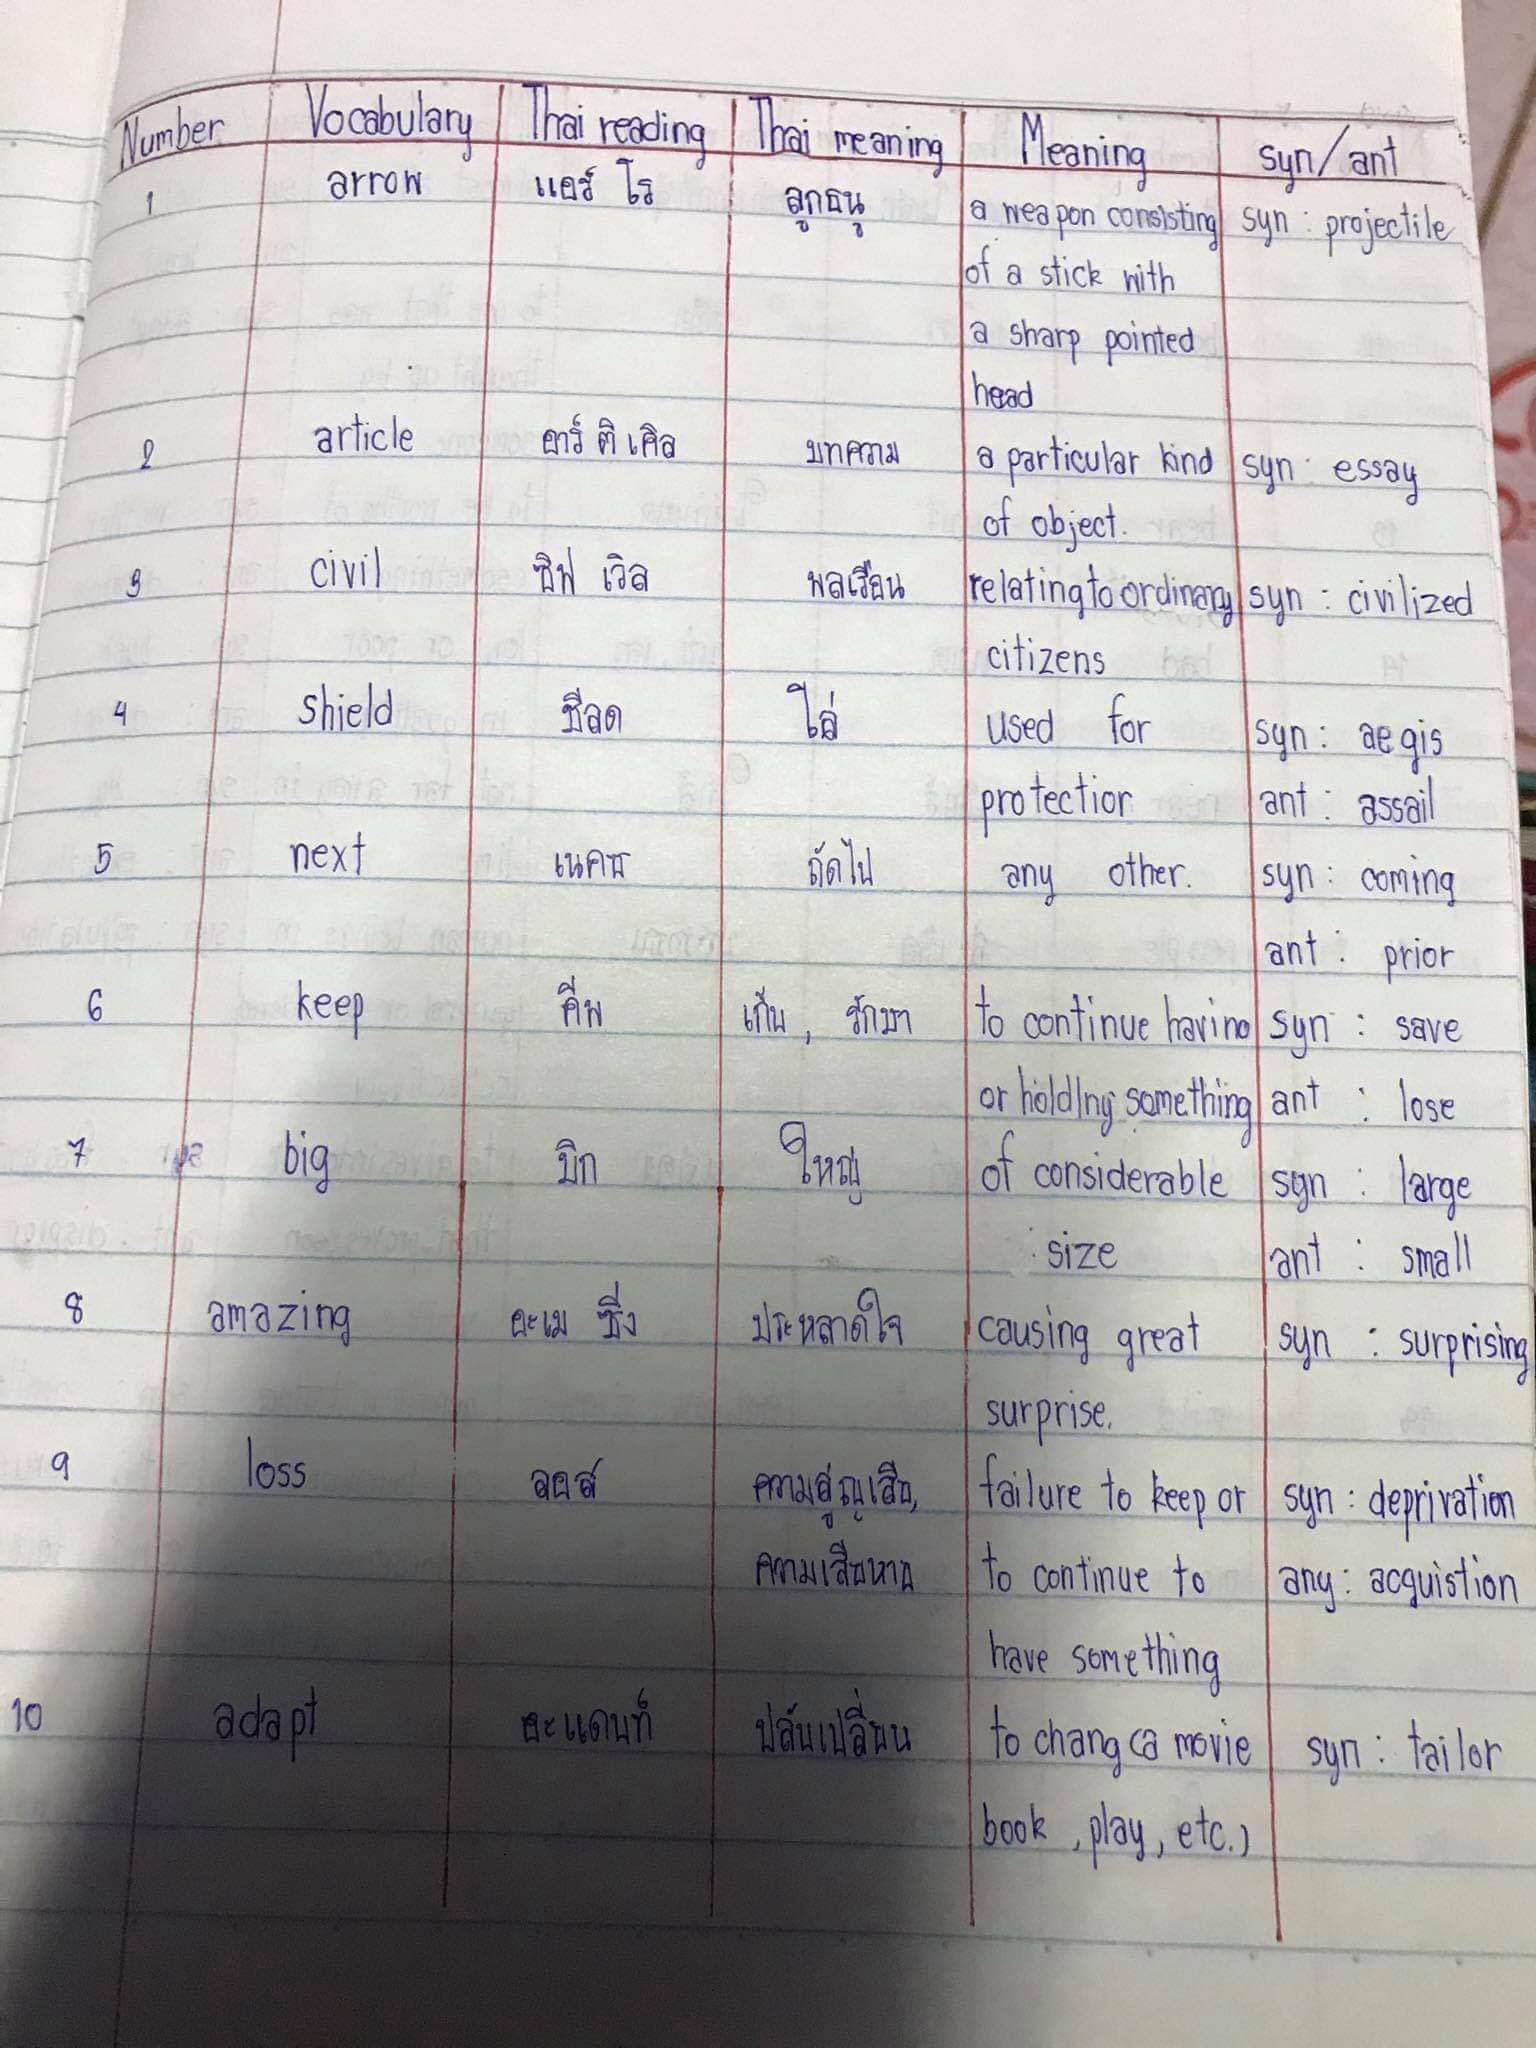 Number Vocabulary Thai reading Thai meaning Meaning syn/ant
1 arrow แอร์ โร ลูกธนู a weapon consisting syn : projectile
of a stick with
a sharp pointed
head
2 article อาร์ ติ เคิล บทความ a particular kind syn : essay
of object.
3 civil ซิฟ เวิล พลเรือน relating to ordinary syn : civilized
citizens
4 shield ชีลด โล่ used for syn : aegis
protection ant : assail
5 next เนคซ ถัดไป any other. syn : coming
ant : prior
6 keep คีพ เก็บ , รักษา to continue having syn : save
or holding something ant : lose
7 big บิก ใหญ่ of considerable syn : large
size ant : small
8 amazing อะเม ซิ่ง ประหลาดใจ causing great syn : surprising
surprise.
9 loss ลอส ความสูญเสีย, failure to keep or syn : deprivation
ความเสียหาย to continue to any : acquistion
have something
10 adapt อะแดบท์ ปลับเปลี่ยน to chang (a movie syn : tailor
book , play , etc.)